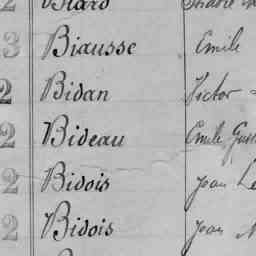 2 Biard
3 Biausse Emile
2 Bidan Victor
2 Bideau Emile
2 Bidois Jean
2 Bidois Jean